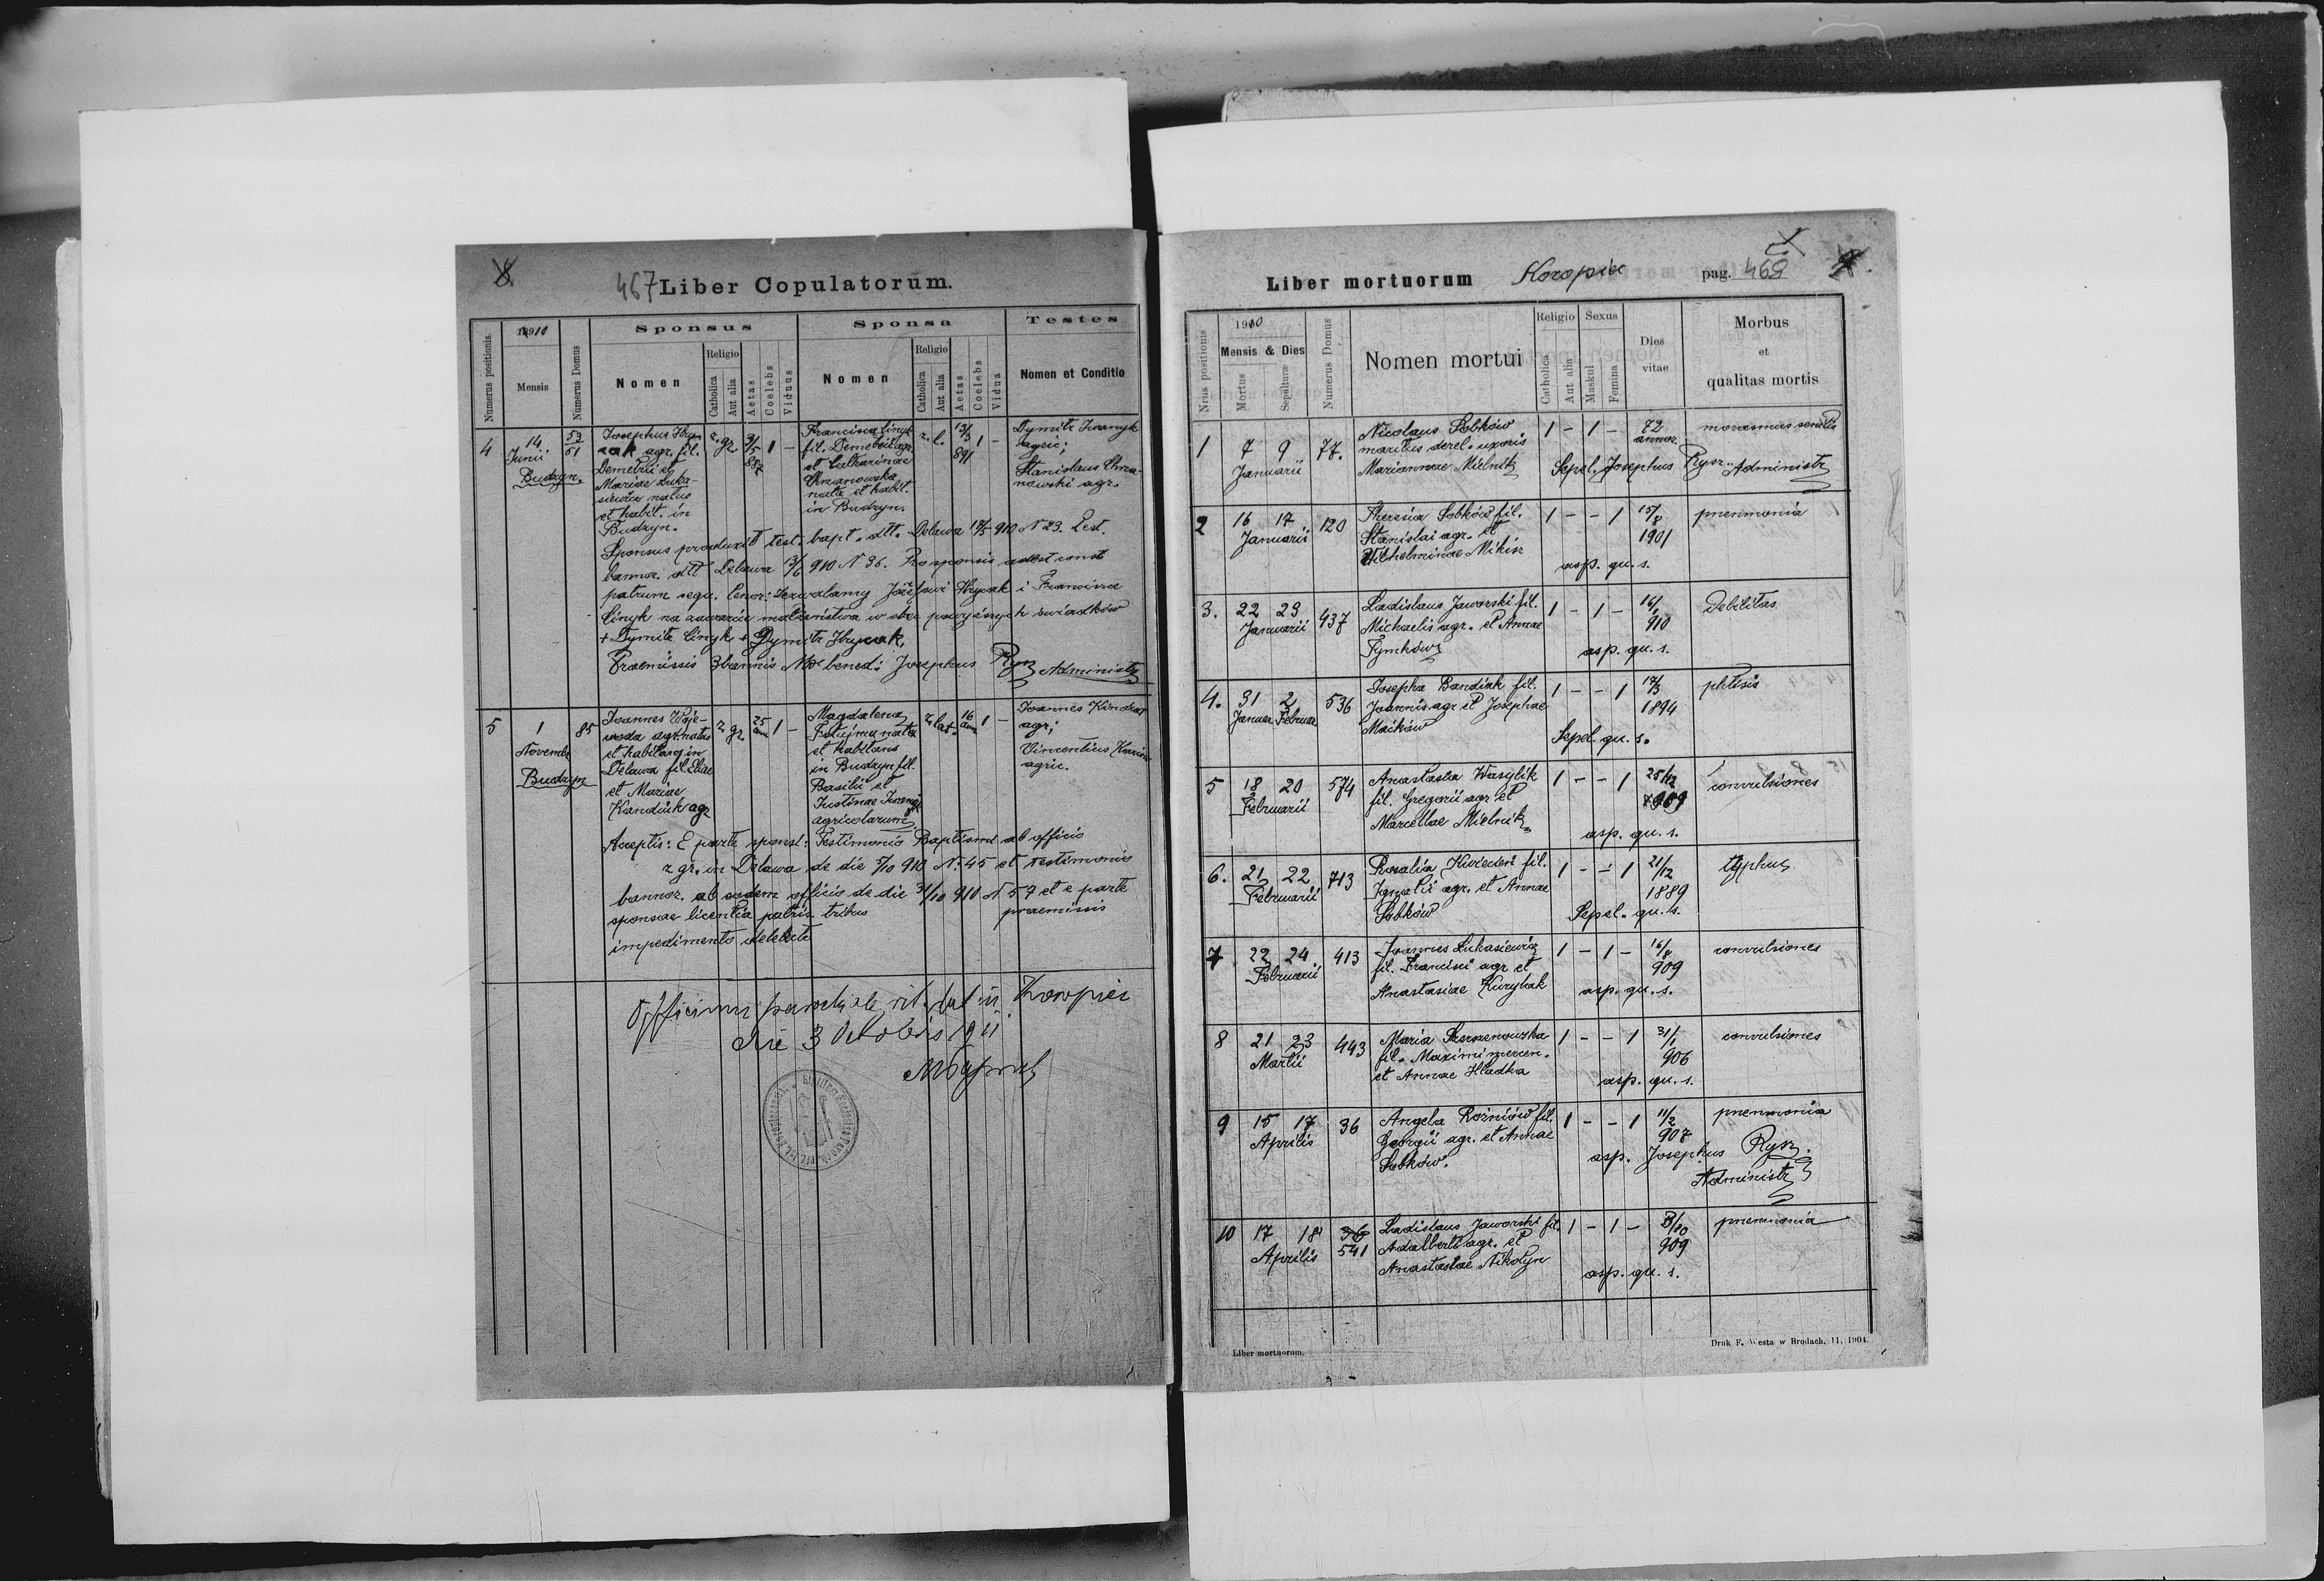 8.
467 Liber Copulatorum.
Numerus positionis
1910
Mensis
Numerus Domus
Sponsus
Nomen
Religio
Catholica
Aut alia
Aetas
Coelebs
Viduus
Sponsa
Nomen
Religio
Catholica
Aut alia
Aetas
Coelebs
Vidua
Testes
Nomen et Conditio
4
14
Junii
Budzyn.
53
51
Josephus Hry-
cak agr. fil.
Demetrii et
Mariae Luka-
siewicz natus
et habit. in
Budzyn.
r. gr.
3/5
887
1 -
Francisca Linyk
fil. Demetrii agr.
et Catharinae
Chmanowska
nata et habit.
in Budzyn.
r. l.
13/3
891
1 -
Dymitr Iwanyk
agric;
Stanislaus
nowski agr.
Sponsus produxit test. bapt. dtt. Delawa 910 N 23. Test.
bannor. dtt Delawa 13/6 910 N 36. Pro sponsis adest const
patrum sequ. tenor: Zezwalamy Józefowi Hrycak i Francisce
Linyk na zawarcie małżeństwa w obec powyższych świadków
+ Dymitr Linyk + Dymitr Hrycak.
Praemissis 3 bannis bened: Josephus Rysz Administr
5
1
Novembr
Budzyn
85
Joannes Woje-
woda agr. natus
et habitans in
Delawa fil. Eliae
et Mariae
Kanduik agr
r. gr.
25
ann
1 -
Magdalena
nata
et habitans
in Budzyn fil.
Basilii et
Justinae Iwanyk
agricolarum
r. lat.
16
ann
1 -
Joannes
agr;
Vincentius
agric.
Acceptis: E parte sponsi: Testimonio Baptismi ab officio
r. gr. in Delawa de die 5/10 910 N. 45 et testimonio
bannor. ab eodem officio de die 31/10 910 N 57 et e parte
sponsae licentia patris tribus praemissis
impedimento detecto
Officium parochiale rit. lat. in Koropiec
die 3 Octobris 1911
Liber mortuorum Koropiec pag. 468
Nrus positionis
1910
Mensis & Dies
Mortus
Sepulturæ
Numerus Domus
Nomen mortui
Religio
Catholica
Aut alia
Sexus
Maskul
Femina
Dies
vitae
Morbus
et
qualitas mortis
1
7 9
Januarii
77.
Nicolaus Sobków
maritus derel. uxoris
Mariannae Mielnik
1 - 1 -
72
annor.
marasmus senilis
Sepel. Josephus Rysz Administr
2
16 17
Januarii
120
Theresia Sobków fil.
Stanislai agr. et
Wilhelminae Mikisz
1 - - 1
15/8
1901
pneumonia
asp. qu. s.
3.
22 23
Januarii
437
Ladislaus Jaworski fil.
Michaelis agr. et Annae
Tymków
1 - 1 -
16/1
910
debilitas
asp. qu. s.
4.
31 2
Januar. Februar
536
Josepha Bandiak fil.
Joannis agr et Josephae
Maików
1 - - 1
1894
phtisis
Sepel. qu. s.
5
18 20
Februarii
574
Anastasia Wasylik
fil. Gregorii agr et
Marcellae Mielnik
1 - - 1
25/12
909
convulsiones
asp. qu. s.
6.
21 22
Februarii
713
Rosalia Kwiecień fil.
Ignatii agr. et Annae
Sobków
1 - - 1
21/12
1889
typhus
Sepel. qu. s.
7
22 24
Februarii
413
Joannes Łukasiewicz
fil. Francisci agr et
Anastasiae Kurylak
1 - 1 -
16/8
909
convulsiones
asp. qu. s.
8
21 23
Martii
443
Maria
fil. Maximi mercen.
et Annae Hladka
1 - - 1
31/1
906
convulsiones
asp. qu. s.
9
15 17
Aprilis
36
Angela Rożniów fil.
Georgii agr. et Annae
Sobków.
1 - - 1
11/2
907
pneumonia
asp. Josephus Rysz.
Administr
10
17 18
Aprilis
36
541
Ladislaus Jaworski fil.
Adalberti agr. et
Anastasiae Nikolyn
1 - 1 -
909
pneumonia
asp. qu. s.
Liber mortuorum.
Druk F. Westa w Brodach. 11. 1904.